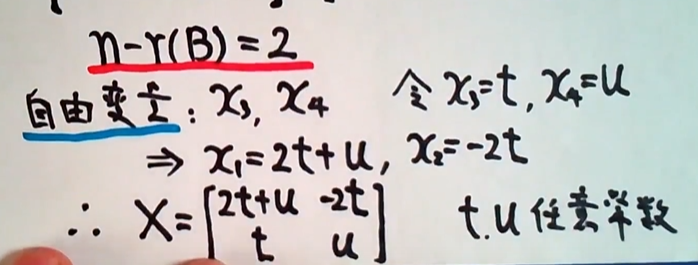 n-r(B)=2
自由变量: x₃, x₄ 令 x₃=t, x₄=u
⇒ x₁=2t+u, x₂=-2t
∴ X=[2t+u -2t
t u] t.u任意常数